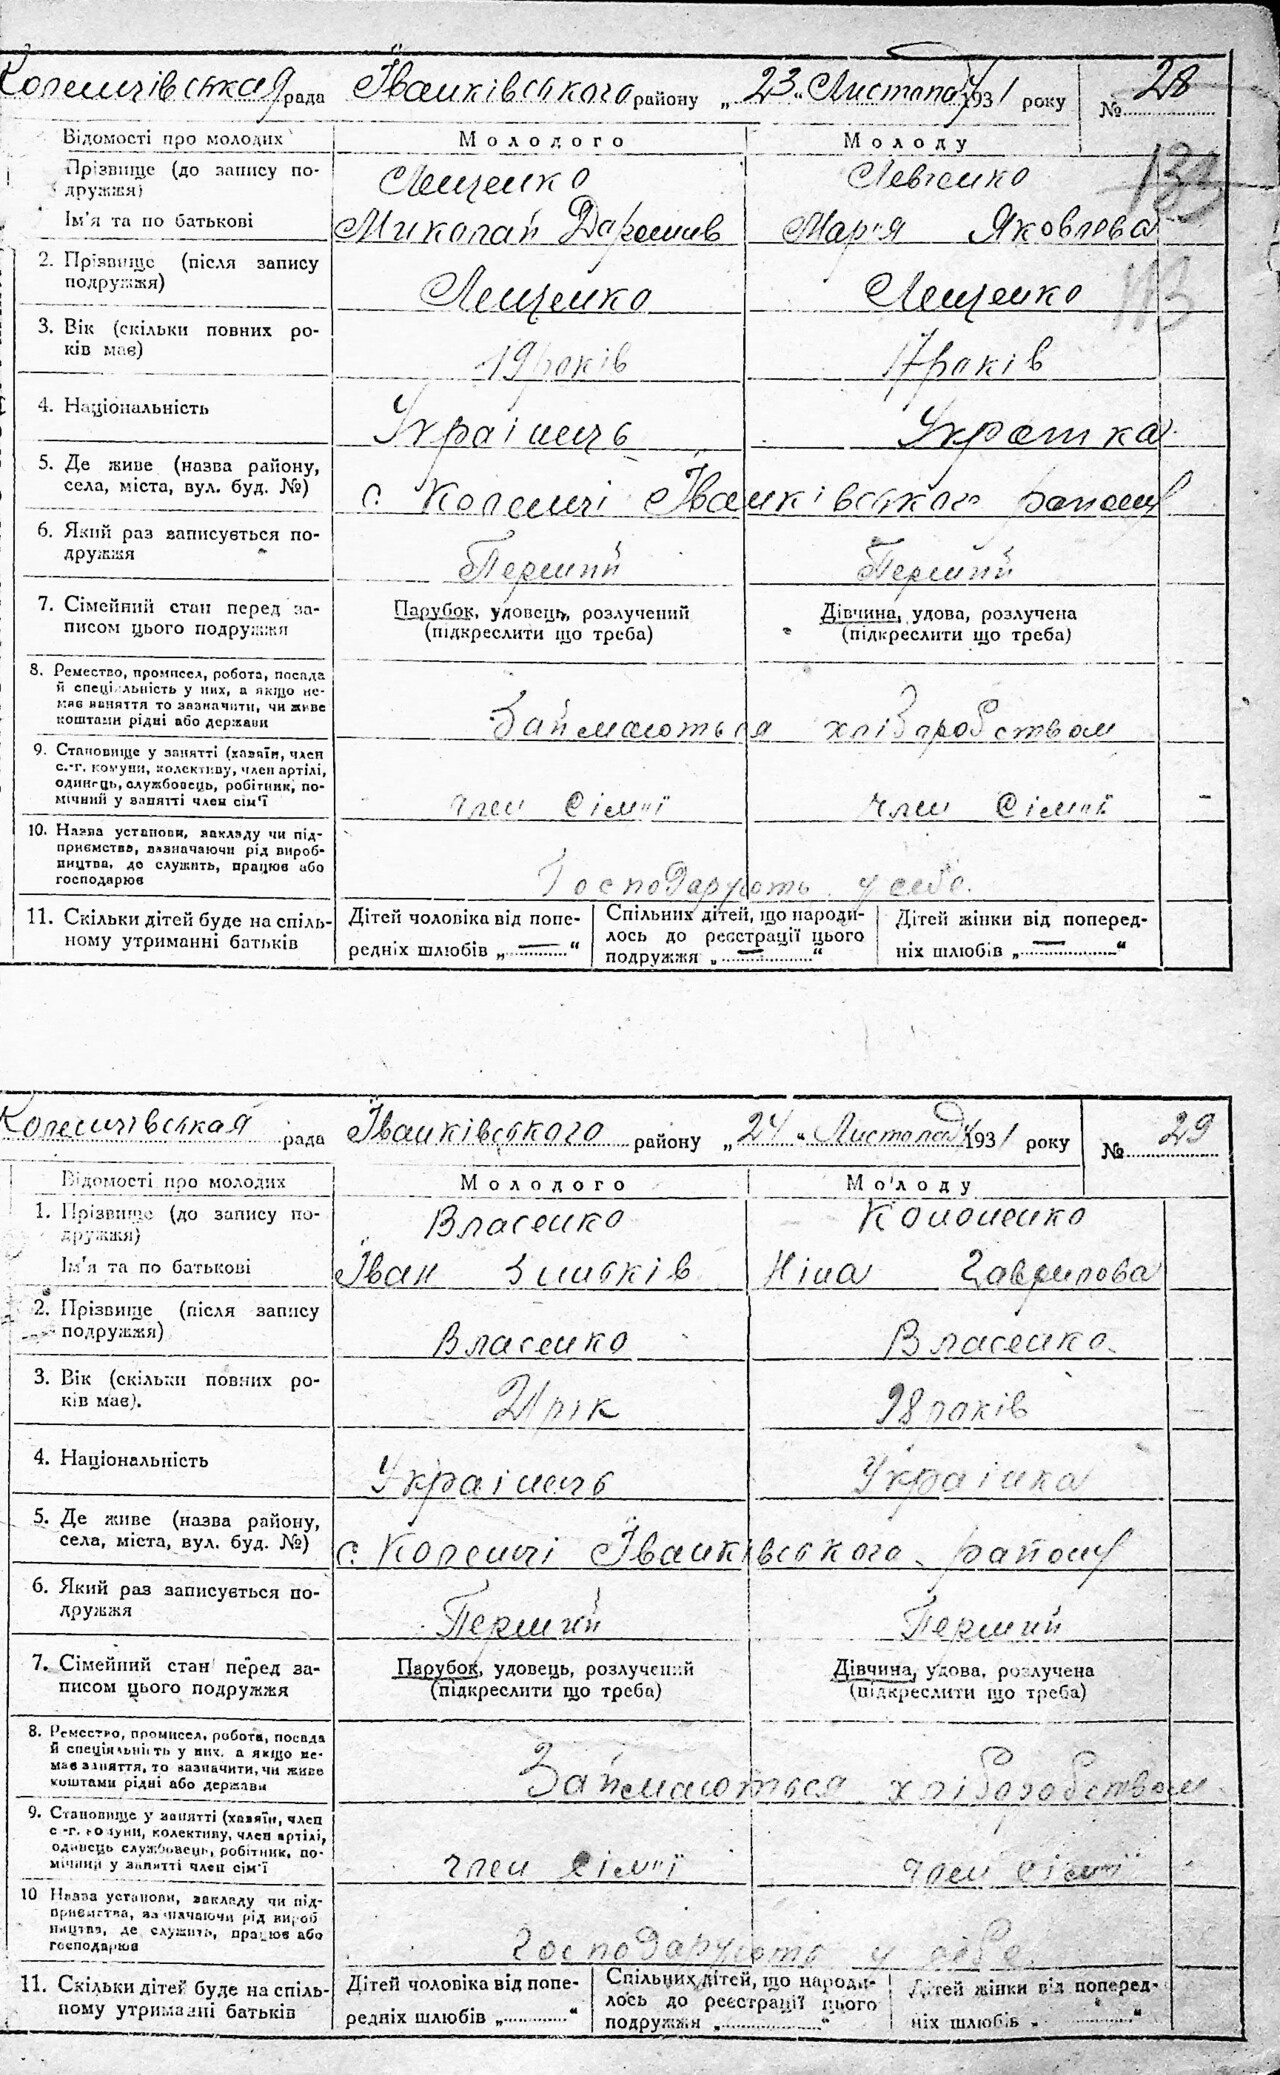 Колениівськая рада Іванківського району „23" Листопада 1931 року № 28
133
Відомості про молодих Молодого Молоду
Прізвище (до запису по- Лещенко Левченко
дружжя)
Ім'я та по батькові Миколай Марія Яковлева
113
2. Прізвище (після запису
подружжя) Лещенко Лещенко
3. Вік (скільки повних ро-
ків має) 19 років 17 років
4. Національність Українець Українка
5. Де живе (назва району,
села, міста, вул. буд. №) с. Іванківського району
6. Який раз записується по-
дружжя Перший Перший
7. Сімейний стан перед за- Парубок, удовець, розлучений Дівчина, удова, розлучена
писом цього подружжя (підкреслити що треба) (підкреслити що треба)
8. Ремество, промисел, робота, посада
й спеціяльність у них, а якщо не-
має заняття то зазначити, чи живе
коштами рідні або держави Займаються хліборобством
9. Становище у занятті (хазяїн, член
с.-г. комуни, колективу, член артілі,
одинець, службовець, робітник, по-
мічний у занятті член сім'ї член сімиї член сімиї
10. Назва установи, закладу чи під-
приємства, зазначаючи рід вироб-
ництва, де служить, працює або
господарює Господарують у себе.
11. Скільки дітей буде на спіль- Дітей чоловіка від попе- Спільних дітей, що народи- Дітей жінки від поперед-
ному утриманні батьків редніх шлюбів „—" лось до реєстрації цього ніх шлюбів „—"
подружжя „—"
рада Іванківського району „24" Листопада 1931 року № 29
Відомості про молодих Молодого Молоду
1. Прізвище (до запису по- Власенко Кононенко
дружжя)
Ім'я та по батькові Іван Ніна Гаврилова
2. Прізвище (після запису
подружжя) Власенко Власенко
3. Вік (скільки повних ро-
ків має). 21 рік 18 років
4. Національність Українець Українка
5. Де живе (назва району,
села, міста, вул. буд. №) с. Іванківського району
6. Який раз записується по-
дружжя Перший Перший
7. Сімейний стан перед за- Парубок, удовець, розлучений Дівчина, удова, розлучена
писом цього подружжя (підкреслити що треба) (підкреслити що треба)
8. Ремество, промисел, робота, посада
й спеціяльність у них, а якщо не-
має заняття, то зазначити, чи живе
коштами рідні або держави Займаються хліборобством
9. Становище у занятті (хазяїн, член
с.-г. комуни, колективу, член артілі,
одинець службовець, робітник, по-
мічний у занятті член сім'ї член сімиї член сімиї
10 Назва установи, закладу чи під-
приємства, зазначаючи рід вироб
ництва, де служить, працює або
господарює господарують у себе
11. Скільки дітей буде на спіль- Дітей чоловіка від попе- Спільних дітей, що народи- Дітей жінки від поперед-
ному утриманні батьків редніх шлюбів „" лось до реєстрації цього ніх шлюбів „"
подружжя „"